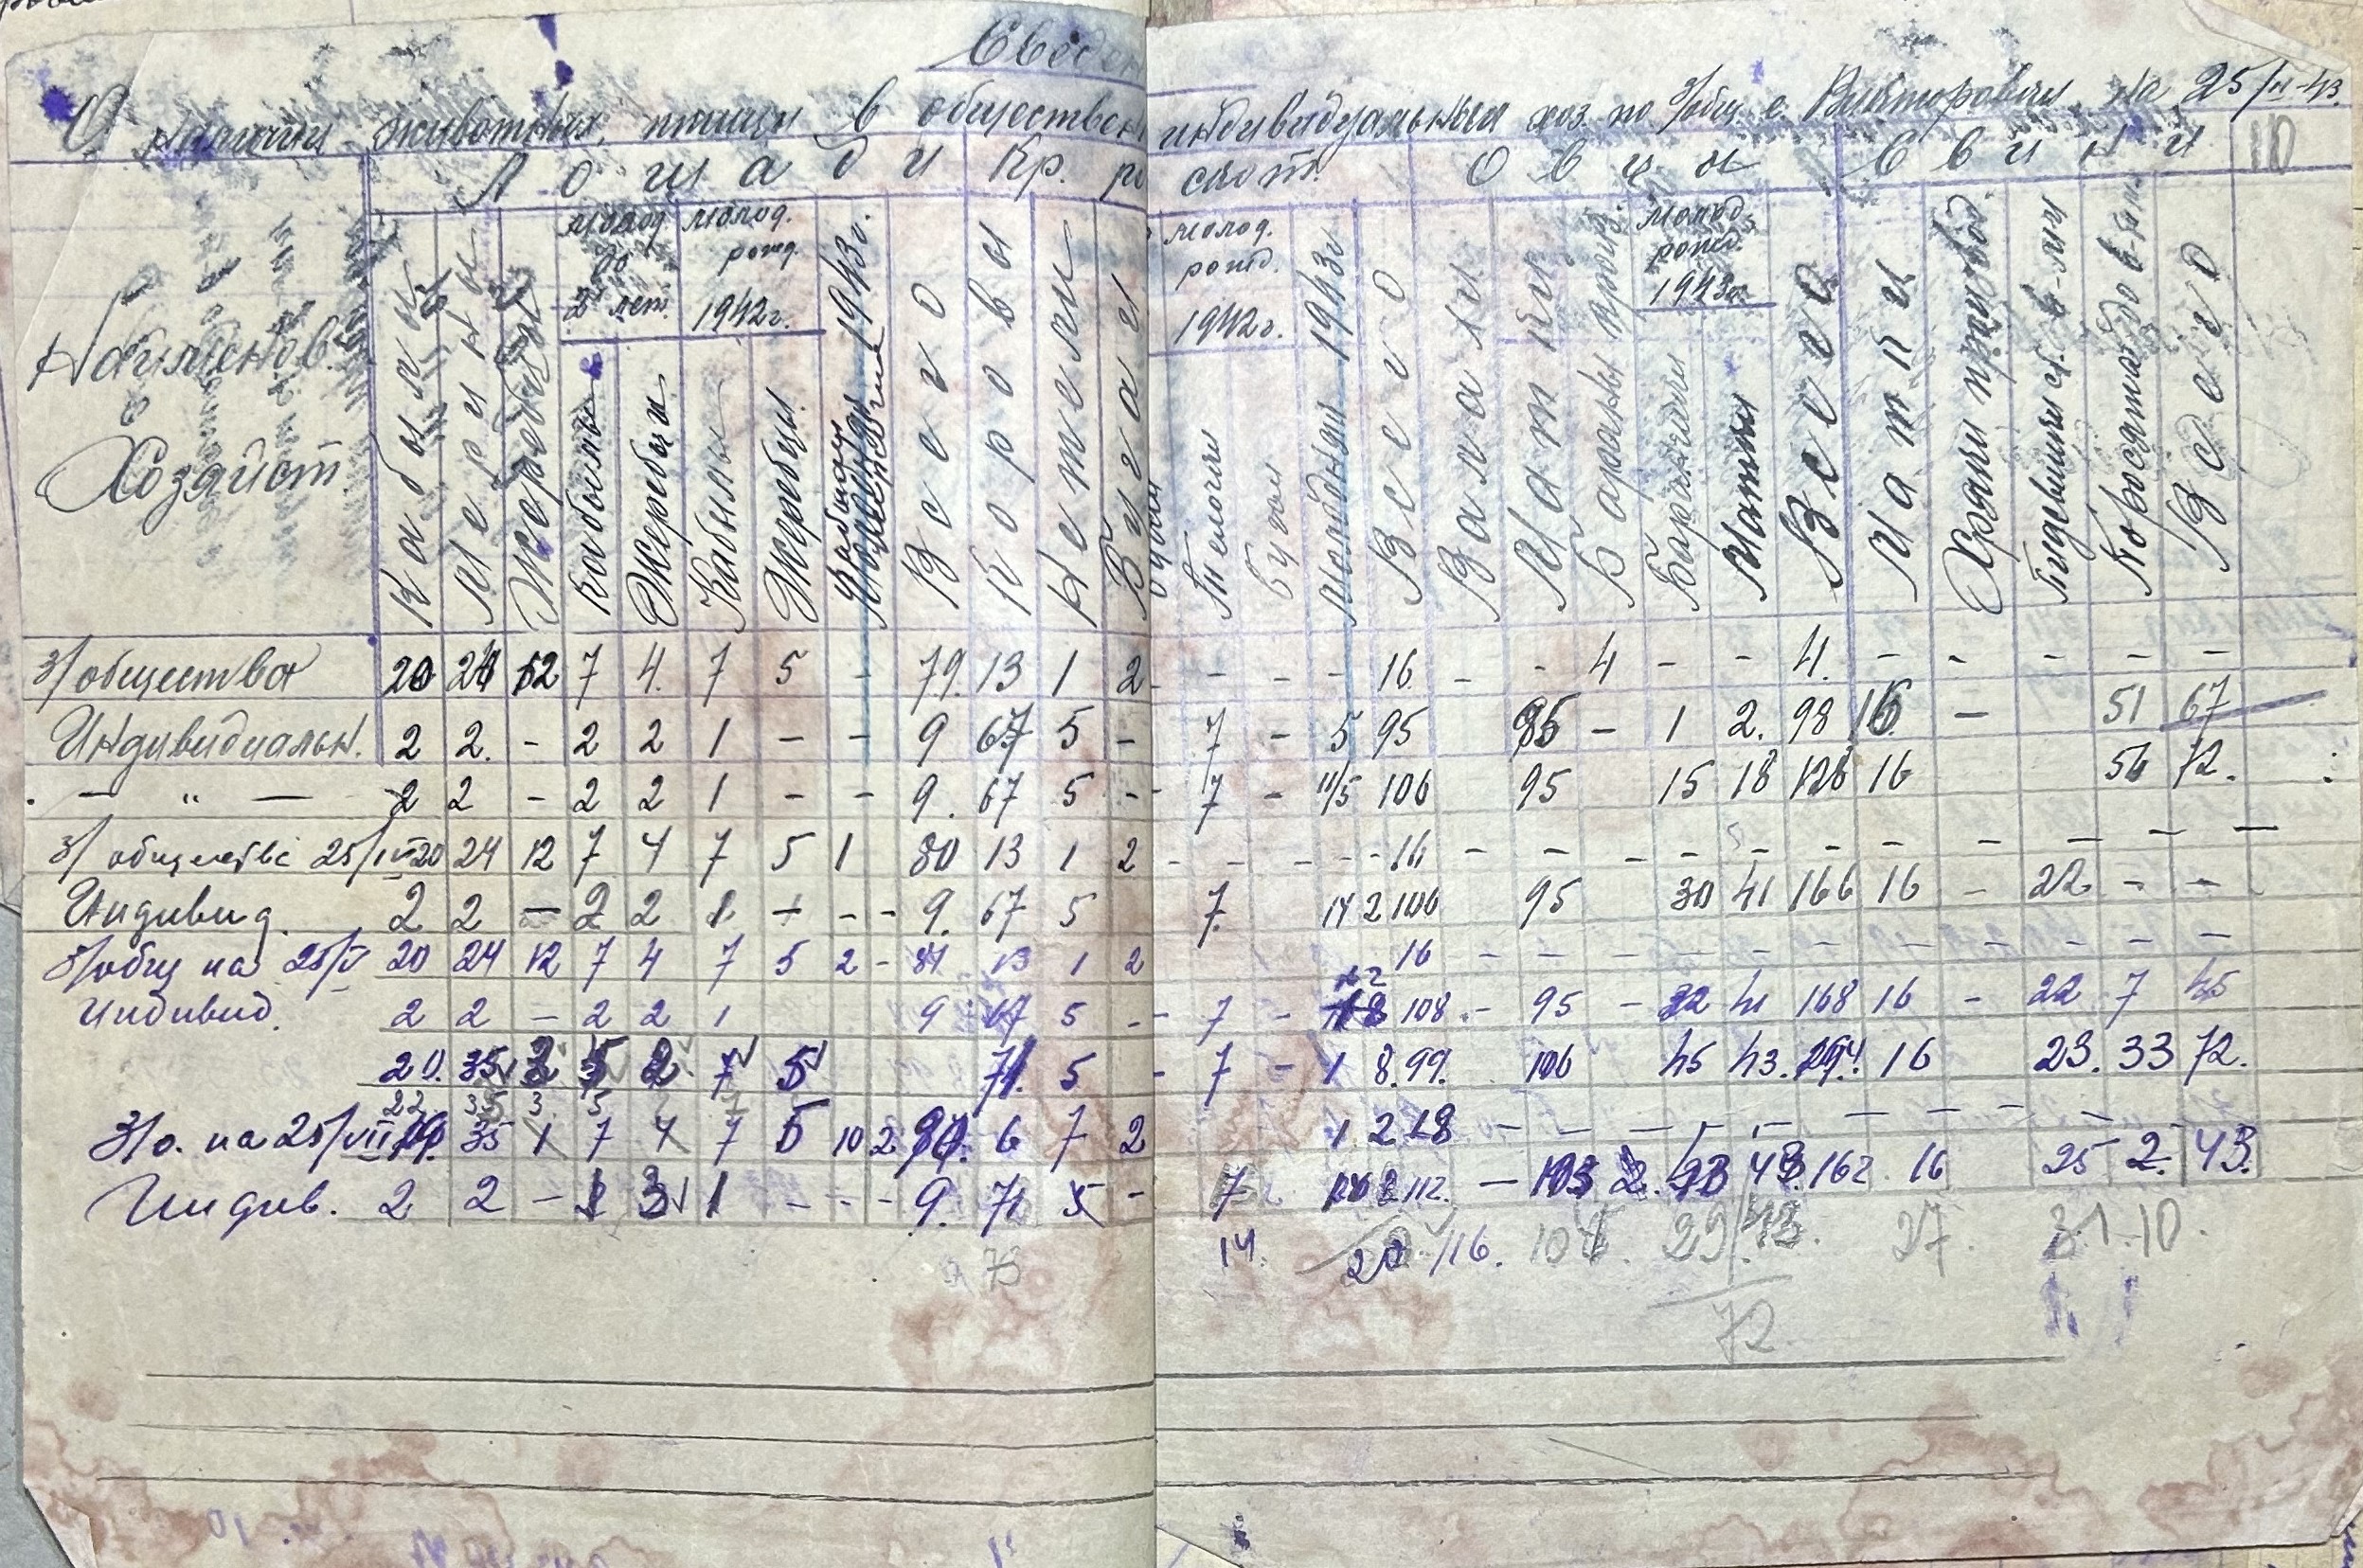 Сведен
О наличии животных, птицы в обществен индивидуальных хоз. по з/общ. с. Викторовка на 25/II-43.
10
Лошади Кр. ро скот. Овцы Свиньи
Наименов. Хозяйст.
Кобылы
Мерины
Жеребцы
молод. до 2х лет.
Кобылы
Жеребцы
молод. рожд. 1942г.
Кобылы
Жеребцы
1943г.
Всего
Коровы
Нетели
Бугаи
молод. рожд. 1942г.
Телочки
Бугаи
Молодняк 1943г
Всего
Валахи
Матки
Бараны произ.
молод. рожд. 1943г.
Баранчики
Матки
Всего
Матки
Хряки производ.
Поросята до 2-х м
Всего
З/общества 20 24 12 7 4. 7 5 - 79. 13 1 2 - - - - 16 - - 4 - - 4. - - - - -
Индивидуальн. 2 2. - 2 2 1 - - 9 67 5 - 7 - 5 95 95 - 1 2. 98 16 - 51 67
- " - 2 2 - 2 2 1 - - 9. 67 5 - 7 - 11/5 106 95 15 18 128 16 56 72.
З/обществе 25/IV 20 24 12 7 4 7 5 1 80 13 1 2 - - - - - 16 - - - - - - - - - - -
Индивид. 2 2 - 2 2 1 + - - 9. 67 5 7. 14 2 106 95 30 41 166 16 - 22 - -
З/общ на 25/V 20 24 12 7 4 7 5 2 - 81 13 1 2 16 - - - - - - - - - - -
Индивид. 2 2 - 2 2 1 9 67 5 - - 7 - 22 18 108 - 95 - 32 41 168 16 - 22 7 45
20. 35 3 5 2 7 5 71. 5 - 7 - 1 8. 99. 106 45 43. 194. 16 23. 33 72.
22 35 3. 5
З/о. на 25/VII 19. 35 1 7 4 7 5 10 2 90. 6 7 2 1. 2 18 - - - - - - - - -
Индив. 2 2 - 1 3 1 - - - 9. 71 5 - 7 8 112. - 103 2. 43. 162 16 25 2. 43.
73 14. 20 116. 29/43. 27. 31. 10.
72.